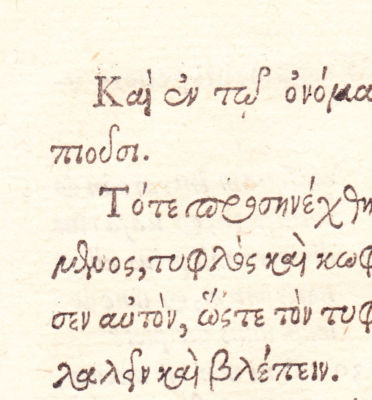 Καὶ ἐν τῷ ὀνόμα
πιοῦσι.
Τότε προσηνέχθη
μένος, τυφλὸς καὶ κωφ
σεν αὐτὸν, ὥςτε τὸν τυφ
λαλεῖν καὶ βλέπειν.